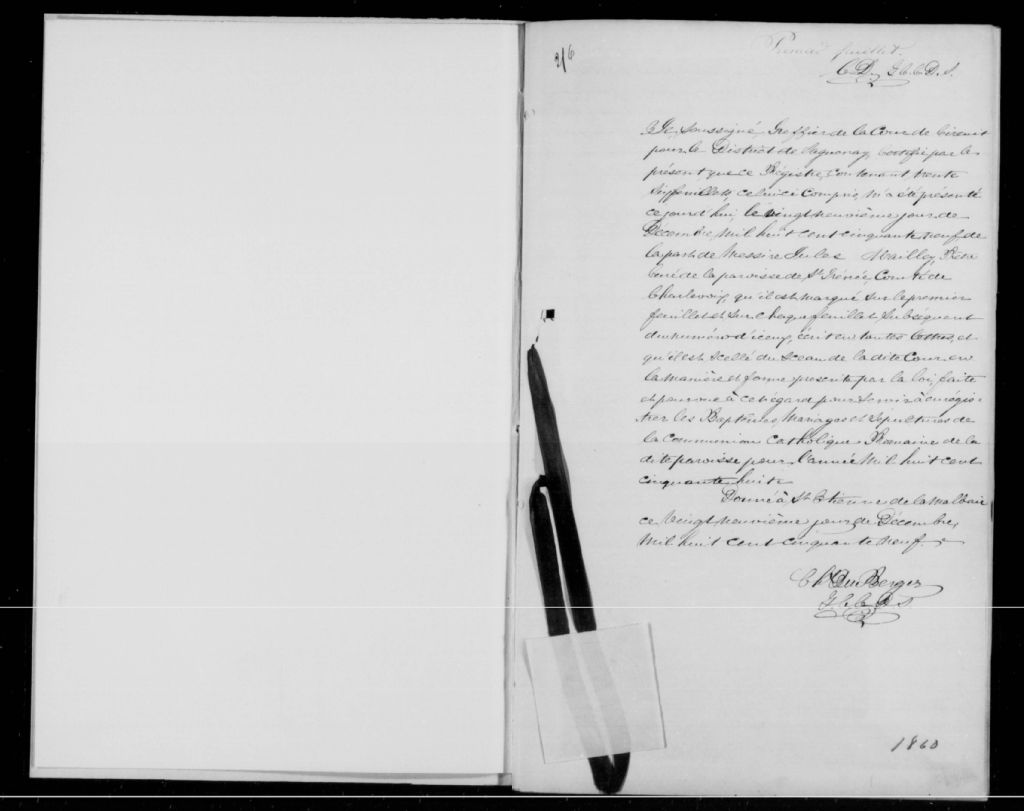 216
Premier feuillet.
C. D. G. C. C. D. S.
Je, Soussigné, Greffier de la Cour de Circuit
pour le District de Saguenay, Certifie par le
présent que ce Régistre, Contenant trente
Six feuillets, celui ci Compris, m'a été présenté
ce jourd'hui, le vingt neuvième jour de
Décembre, Mil huit cent cinquante neuf de
la part de Messire Jules Mailley, Ptre
Curé de la paroisse de St Irénée, Comté de
Charlevoix, qu'il est Marqué sur le premier
feuillet et sur chaque feuillet subséquent
du numéro d'iceux, écrit en toutes lettres, et
qu'il est scellé du Sceau de la dite Cour en
la manière et forme prescrite par la loi, faite
et pourvue à cet égard pour servir à enrégis-
trer les Baptêmes, Mariages et Sépultures de
la Communion Catholique Romaine de la
dite paroisse pour l'année Mil huit cent
cinquante huit
Donné à St Etienne de la Malbaie
ce Vingt neuvième jour de Décembre,
Mil huit cent cinquante neuf.
Chs Du Berger
G. C. C. D. S.
1860